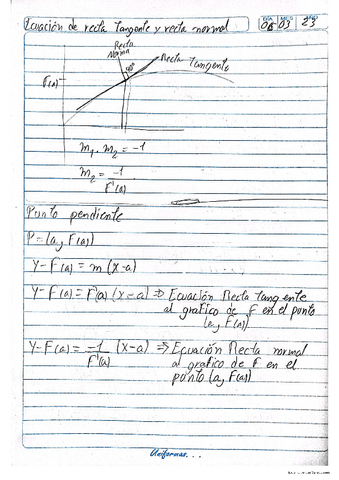 Ecuación de recta tangente y recta normal
06 03 23
Recta
Normal
90°
Recta Tangente
F(a)
m₁ . m₂ = -1
m₂ = -1
F'(a)
Punto pendiente
P = (a, F(a))
Y - F(a) = m (x-a)
Y - F(a) = F'(a) (x-a) ⇒ Ecuación Recta tangente
al grafico de F en el punto
(a, F(a))
Y - F(a) = -1 (x-a) ⇒ Ecuación Recta normal
F'(a) al grafico de F en el
punto (a, F(a))
Uniformas...